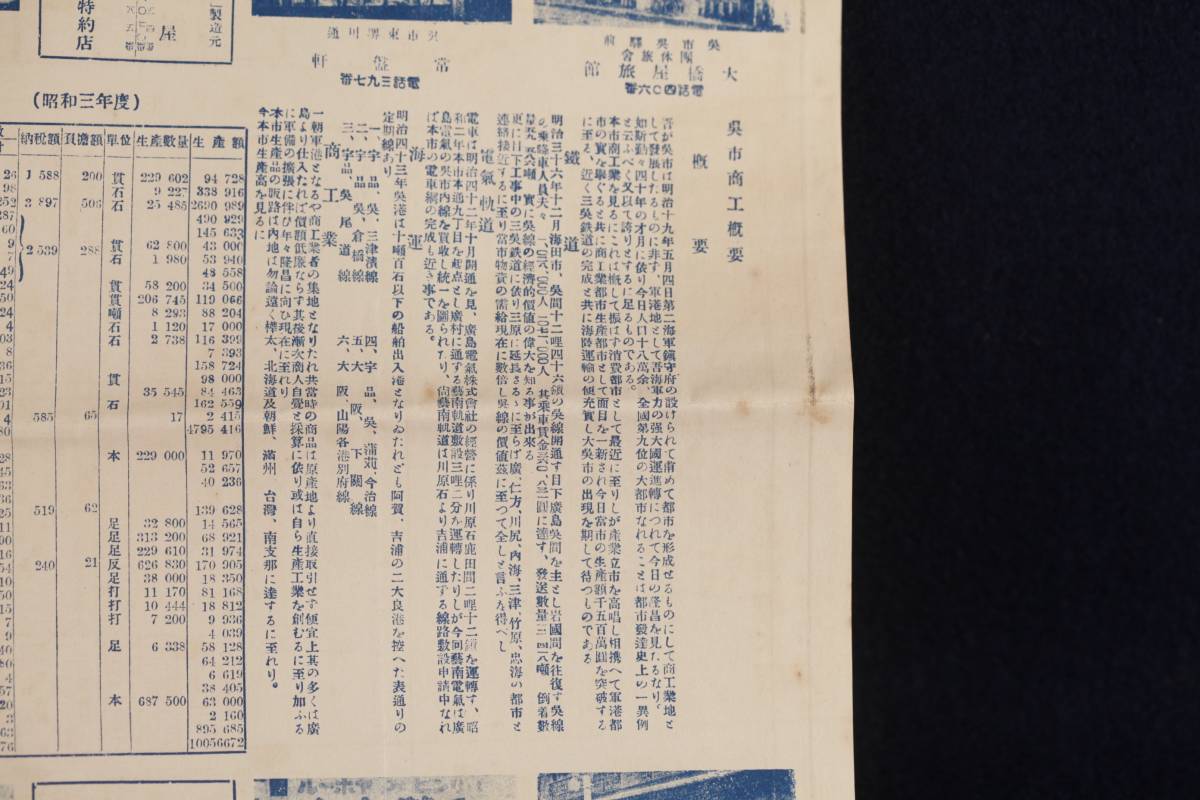 呉市呉驛前
團体旅舍
大橋屋旅館
電話四〇六番
呉市東堺川通
常盤軒
電話三九七番
製造元
屋
特約店
呉市商工概要
概要
吾が呉市は明治十九年五月四日第二海軍鎮守府の設けられて甫めて都市を形成せるものにして商工業地と
して發展したるものに非ず、軍港地として吾海軍力の强大國運進轉につれて今日の隆昌を見たるなり。
如斯勤々四十年の才月に依り今日人口十八萬余、全國第九位の大都市なれることは都市發達史上の一異例
と云ふべく又以て誇りとするに足るものである。
本市商工業を見るにこれは概して振はず消費都市として最近に至りしが產業立市を高唱し相携へて軍港都
市の實を擧ぐると共に商工業都市生產都市として面目を一新され今日當市の生產額千五百萬圓を突破する
に至る、近く三呉鉄道の完成と共に海陸運輸の便充實し大呉市の出現を期して待つものである
鐵道
明治三十六年十二月海田市、呉間十二哩四十六鎖の呉線開通す目下廣島呉間を主とし岩國間を往復す呉線
の乘降車人員夫々
實に呉線の經濟的價値の偉大を知る事が出來る
更に目下工事中の三呉鉄道に依り三原に延長さるゝに至らば廣、仁方、川尻、內海、三津、竹原、忠海の都市と
連絡接近するに至り當市物資の需給現在に數倍し呉線の價値茲に至つて全しと言ふを得へし
電氣軌道
電車は明治四十二年十月開通を見、廣島電氣株式會社の經營に係り川原石鹿田間二哩十二鎖を運轉す、昭
和二年本市本通九丁目を起点とし廣村に通する藝南軌道敷設三哩二分を運轉したりしが今回藝南電氣は廣
島電氣の呉市內線を買收し統一を圖られたり、尙藝南軌道は川原石より吉浦に通する線路敷設申請中なれ
ば本市の電車網の完成も近き事である。
海運
明治四十三年呉港は十噸百石以下の船舶出入港となりゐたれども阿賀、吉浦の二大良港を控へた表通りの
定期線あり
一、宇品、呉、三津濱線
二、宇品、呉、倉橋線
三、宇品、呉、尾道線
四、宇品、呉、蒲苅、今治線
五、大阪、下關線
六、大阪、山陽各港別府線
商工業
一朝軍港となるや商工業者の集地となりたれ共當時の商品は原產地より直接取引せず便宜上其の多くは廣
島より仕入たれば價額低廉ならず其後漸次商人自覺と採算に依り或は自ら生產工業を創むるに至り加ふる
に軍備の擴張に伴ひ年々隆昌に向ひ現在に至れり
本市生產品の販路は內地は勿論遠く樺太、北海道及朝鮮、滿州、台灣、南支那に達するに至れり。
今本市生產高を見るに
（昭和三年度）
納稅額 負擔額 單位 生產數量 生產額
1 588 200 貫 229 602 94 728
石 9 227 338 916
3 897 506 石 25 485 2690 989
490 829
145 633
2 539 288 貫 62 800 43 000
石 1 980 53 940
48 558
貫 58 200 34 500
貫 206 745 119 066
噸 8 293 88 204
石 1 120 17 000
石 2 738 116 399
7 393
158 724
貫 98 000
35 545 84 463
石 162 559
585 65 17 2 415
4795 416
本 229 000 11 970
52 657
40 236
519 62 139 628
足 32 800 14 565
足 313 200 68 921
足 229 610 31 974
240 21 反 626 830 170 905
足 38 000 18 350
打 11 170 81 168
打 10 444 18 812
打 7 200 9 936
4 039
足 6 338 58 128
64 212
6 619
38 405
本 687 500 63 000
2 160
895 685
10056672